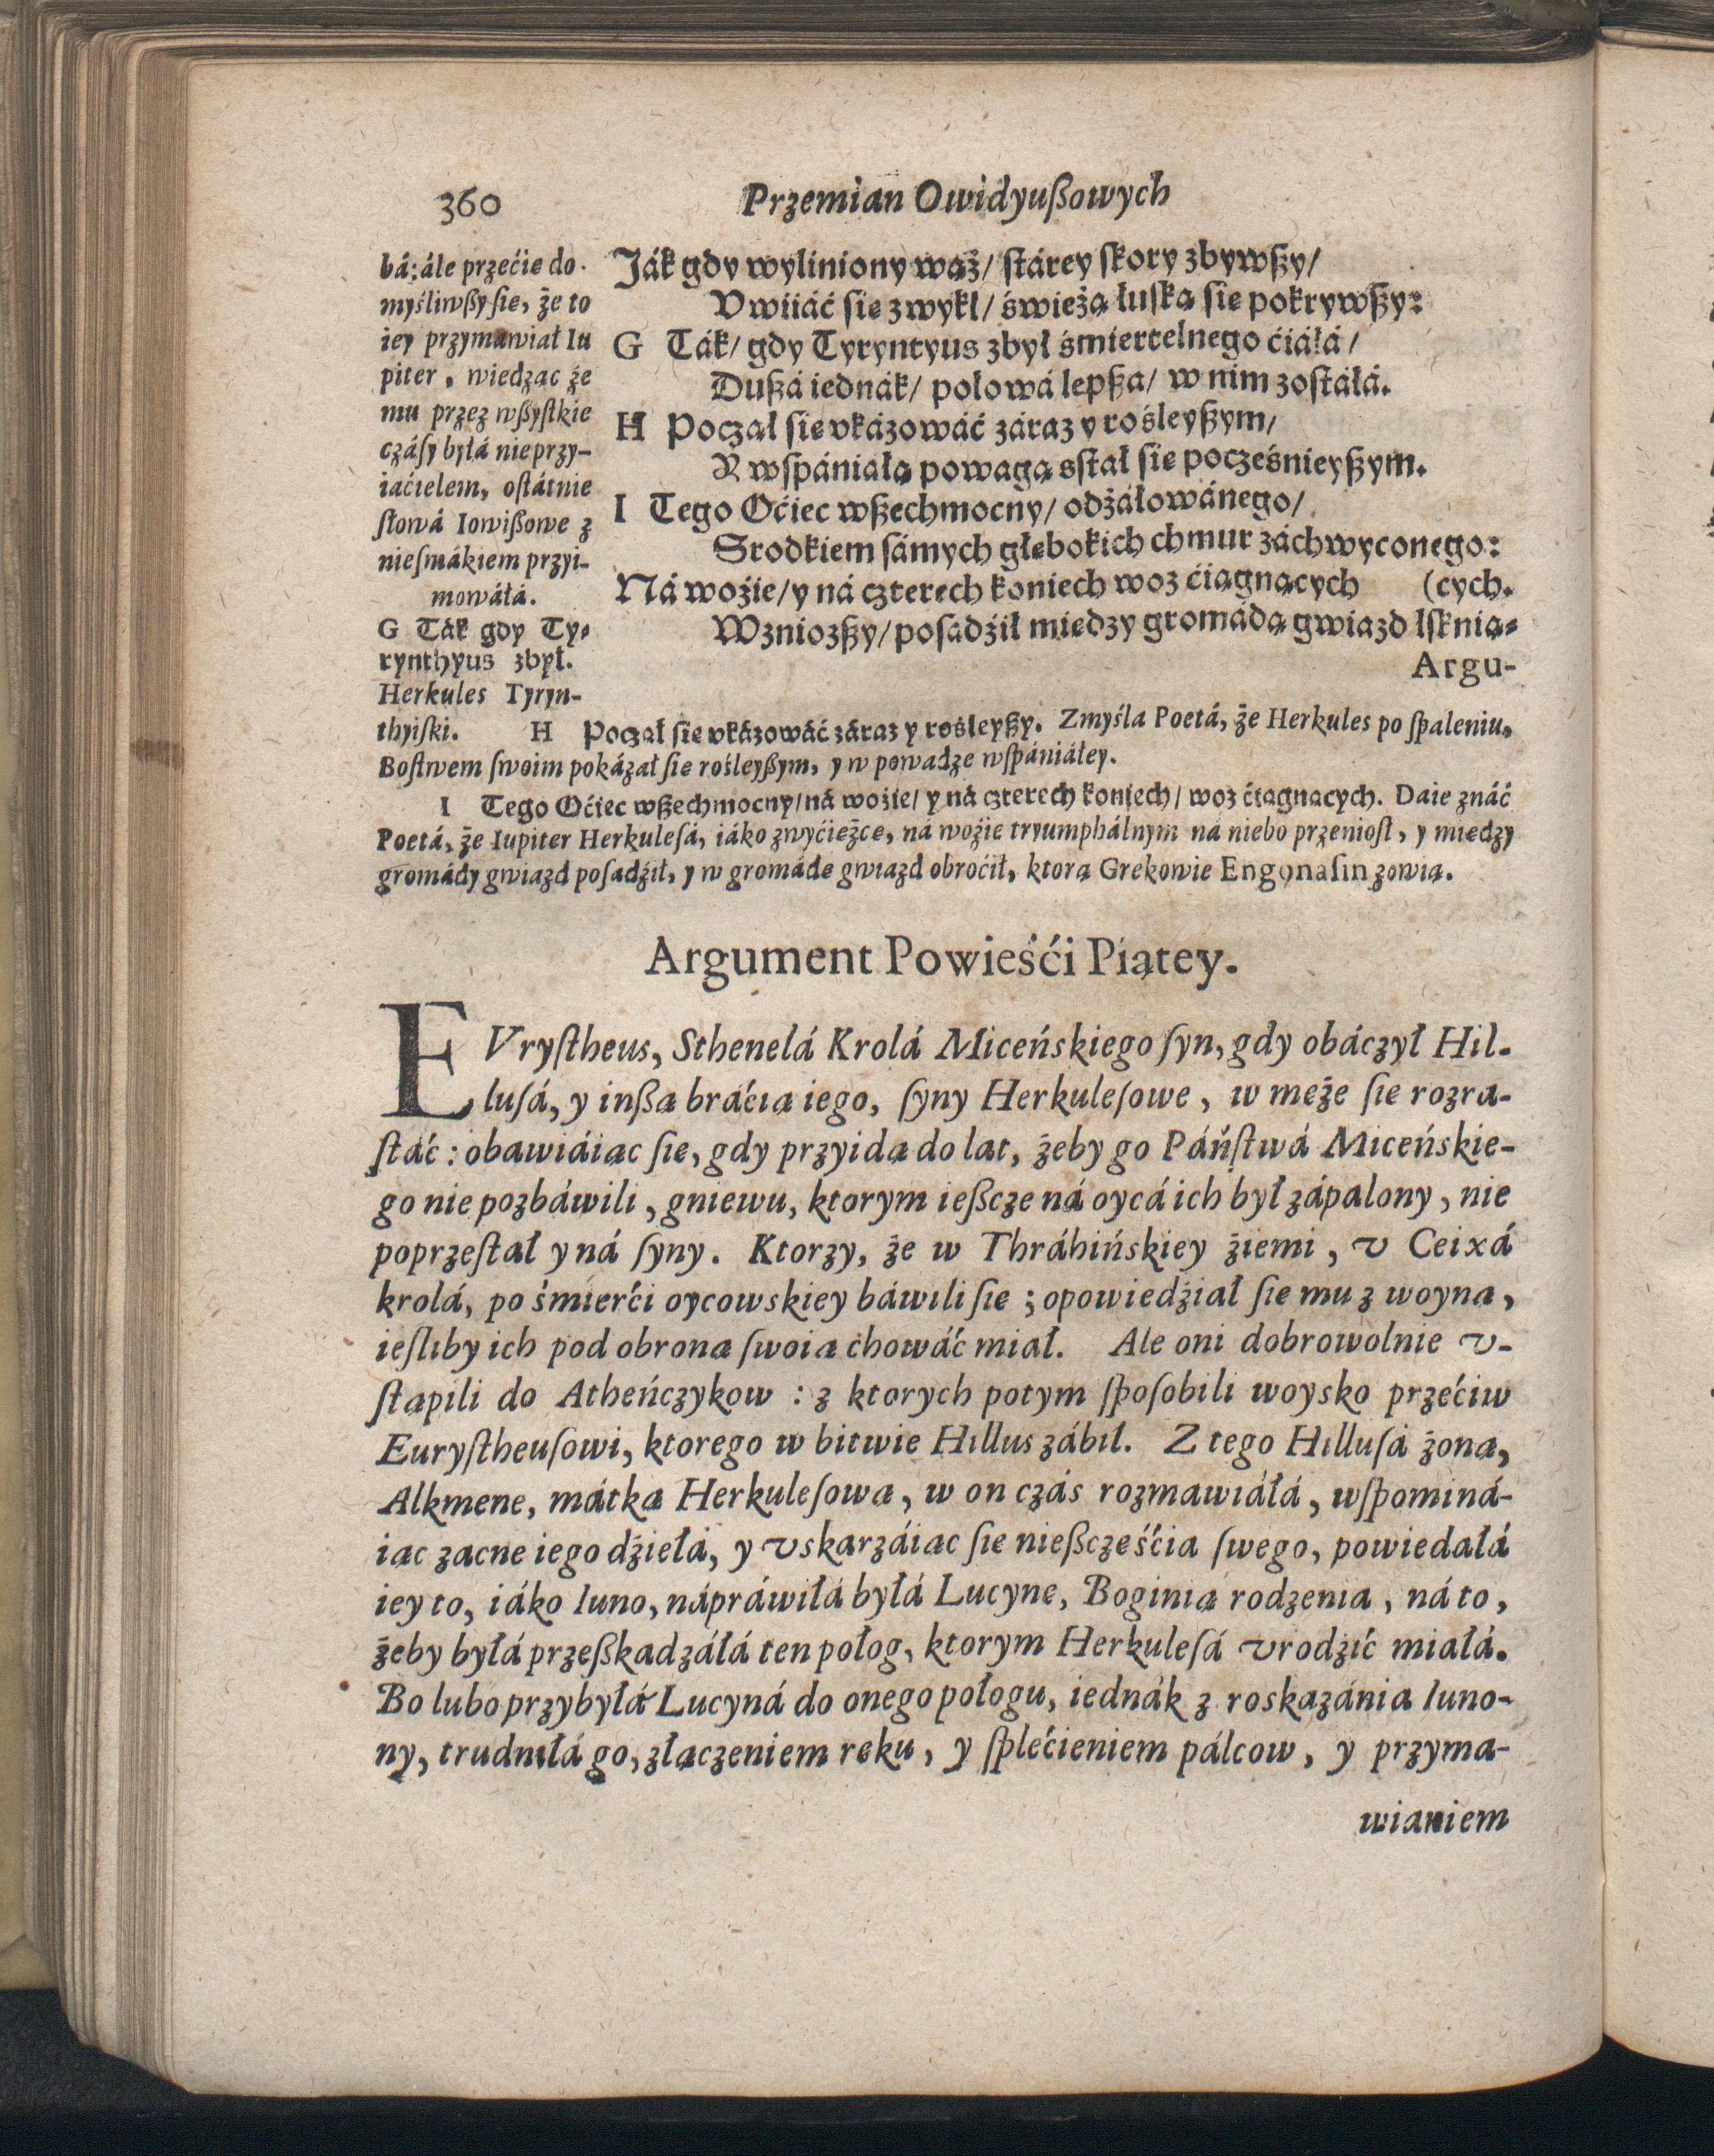 360
Przemian Owidyußowych
bá: ále przećie do-
myśliwßy ſie, że to
iey przymawiał Iu
piter, wiedząc że
mu przez wßyſtkie
czáſy byłá nieprzy-
iaćielem, oſtátnie
ſłowá Iowißowe z
nieſmákiem przyi-
mowáłá.
G Ták gdy Ty-
rynthyus zbył.
Herkules Tyryn-
Ják gdy wyliniony wąż/ ſtárey ſkory zbywßy/
Vwiiáć ſie zwykł/ świeżą łuſką ſie pokrywßy:
G Ták/ gdy Tyryntyus zbył śmiertelnego ćiáłá/
Dußá iednák/ połowá lepßa/ w nim zoſtáłá.
H Począł ſie vkázowáć záraz y rośleyßym/
Y wſpániałą powagą sſtał ſie pocześnieyßym.
I Tego Oćiec wßechmocny/ odżáłowánego/
Srodkiem ſámych głebokich chmur záchwyconego:
Ná woźie/ y ná czterech koniech woz ćiągnących (cych.
Wzniozßy/ poſadźił miedzy gromádą gwiazd lſknią-
Argu-
thyiſki. H Począł ſie vkázowáć záraz y rośleyßy. Zmyśla Poetá, że Herkules po ſpaleniu,
Boſtwem ſwoim pokázał ſie rośleyßym, y w powadze wſpániáłey.
I Tego Oćiec wßechmocny/ ná woźie/ y ná czterech koniech/ woz ćiągnących. Daie znáć
Poetá, że Iupiter Herkuleſá, iáko zwyćiężce, ná woźie tryumphálnym ná niebo przenioſł, y miedzy
gromády gwiazd poſadźił, y w gromáde gwiazd obroćił, ktorą Grekowie Engonaſin zowią.
Argument Powieśći Piątey.
EVryſtheus, Sthenelá Krolá Miceńskiego ſyn, gdy obáczył Hil-
luſá, y inßą bráćią iego, ſyny Herkuleſowe, w męże ſie rozra-
ſtáć: obawiáiąc ſie, gdy przyidą do lat, żeby go Páńſtwá Miceńskie-
go nie pozbáwili, gniewu, ktorym ießcze ná oycá ich był zápalony, nie
poprzeſtał y ná ſyny. Ktorzy, że w Thráhińskiey źiemi, v Ceixá
krolá, po śmierći oycowskiey báwili ſie; opowiedźiał ſie mu z woyną,
ieſliby ich pod obroną ſwoią chowáć miał. Ale oni dobrowolnie v-
ſtąpili do Atheńczykow: z ktorych potym ſpoſobili woysko przećiw
Euryſtheuſowi, ktorego w bitwie Hillus zábił. Z tego Hilluſá żoną,
Alkmene, mátka Herkuleſowa, w on czás rozmawiáłá, wſpominá-
iąc zacne iego dźiełá, y vskarzáiąc ſie nießcześćia ſwego, powiedałá
iey to, iáko Iuno, nápráwiłá byłá Lucynę, Boginią rodzenia, ná to,
żeby byłá przeßkadzáłá ten połog, ktorym Herkuleſá vrodźić miałá.
Bo lubo przybyłá Lucyná do onego połogu, iednák z roskazánia Iuno-
ny, trudniłá go, złączeniem ręku, y ſplećieniem pálcow, y przyma-
wianiem